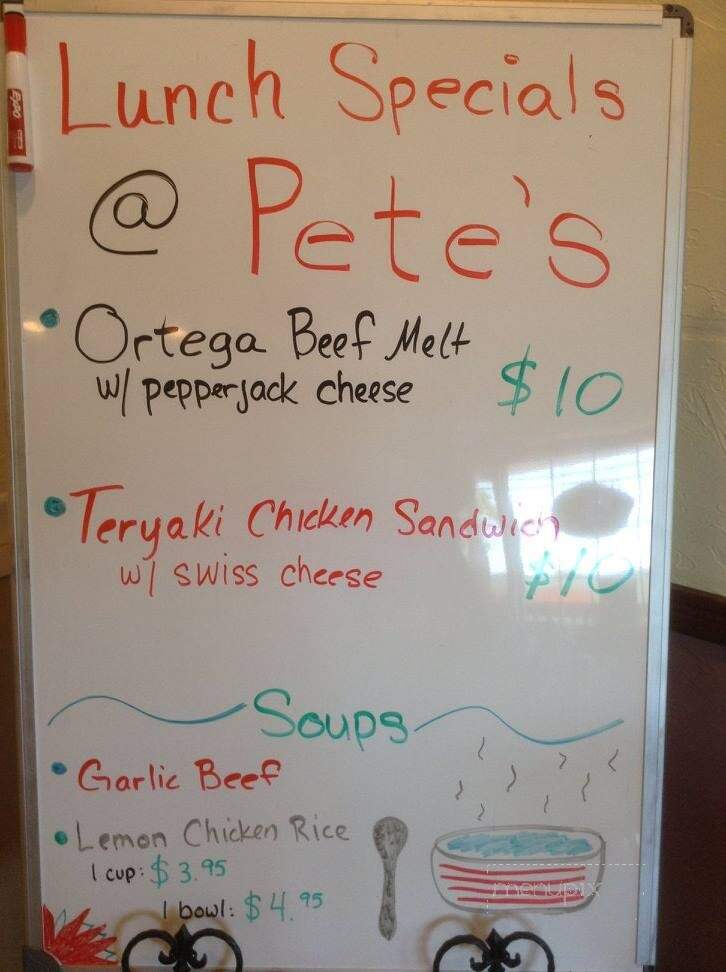 Expo
Lunch Specials
@ Pete's
Ortega Beef Melt
w/ pepperjack cheese $10
Teryaki Chicken Sandwich
w/ swiss cheese $10
Soups
Garlic Beef
Lemon Chicken Rice
1 cup: $3.95
1 bowl: $4.95
menupix